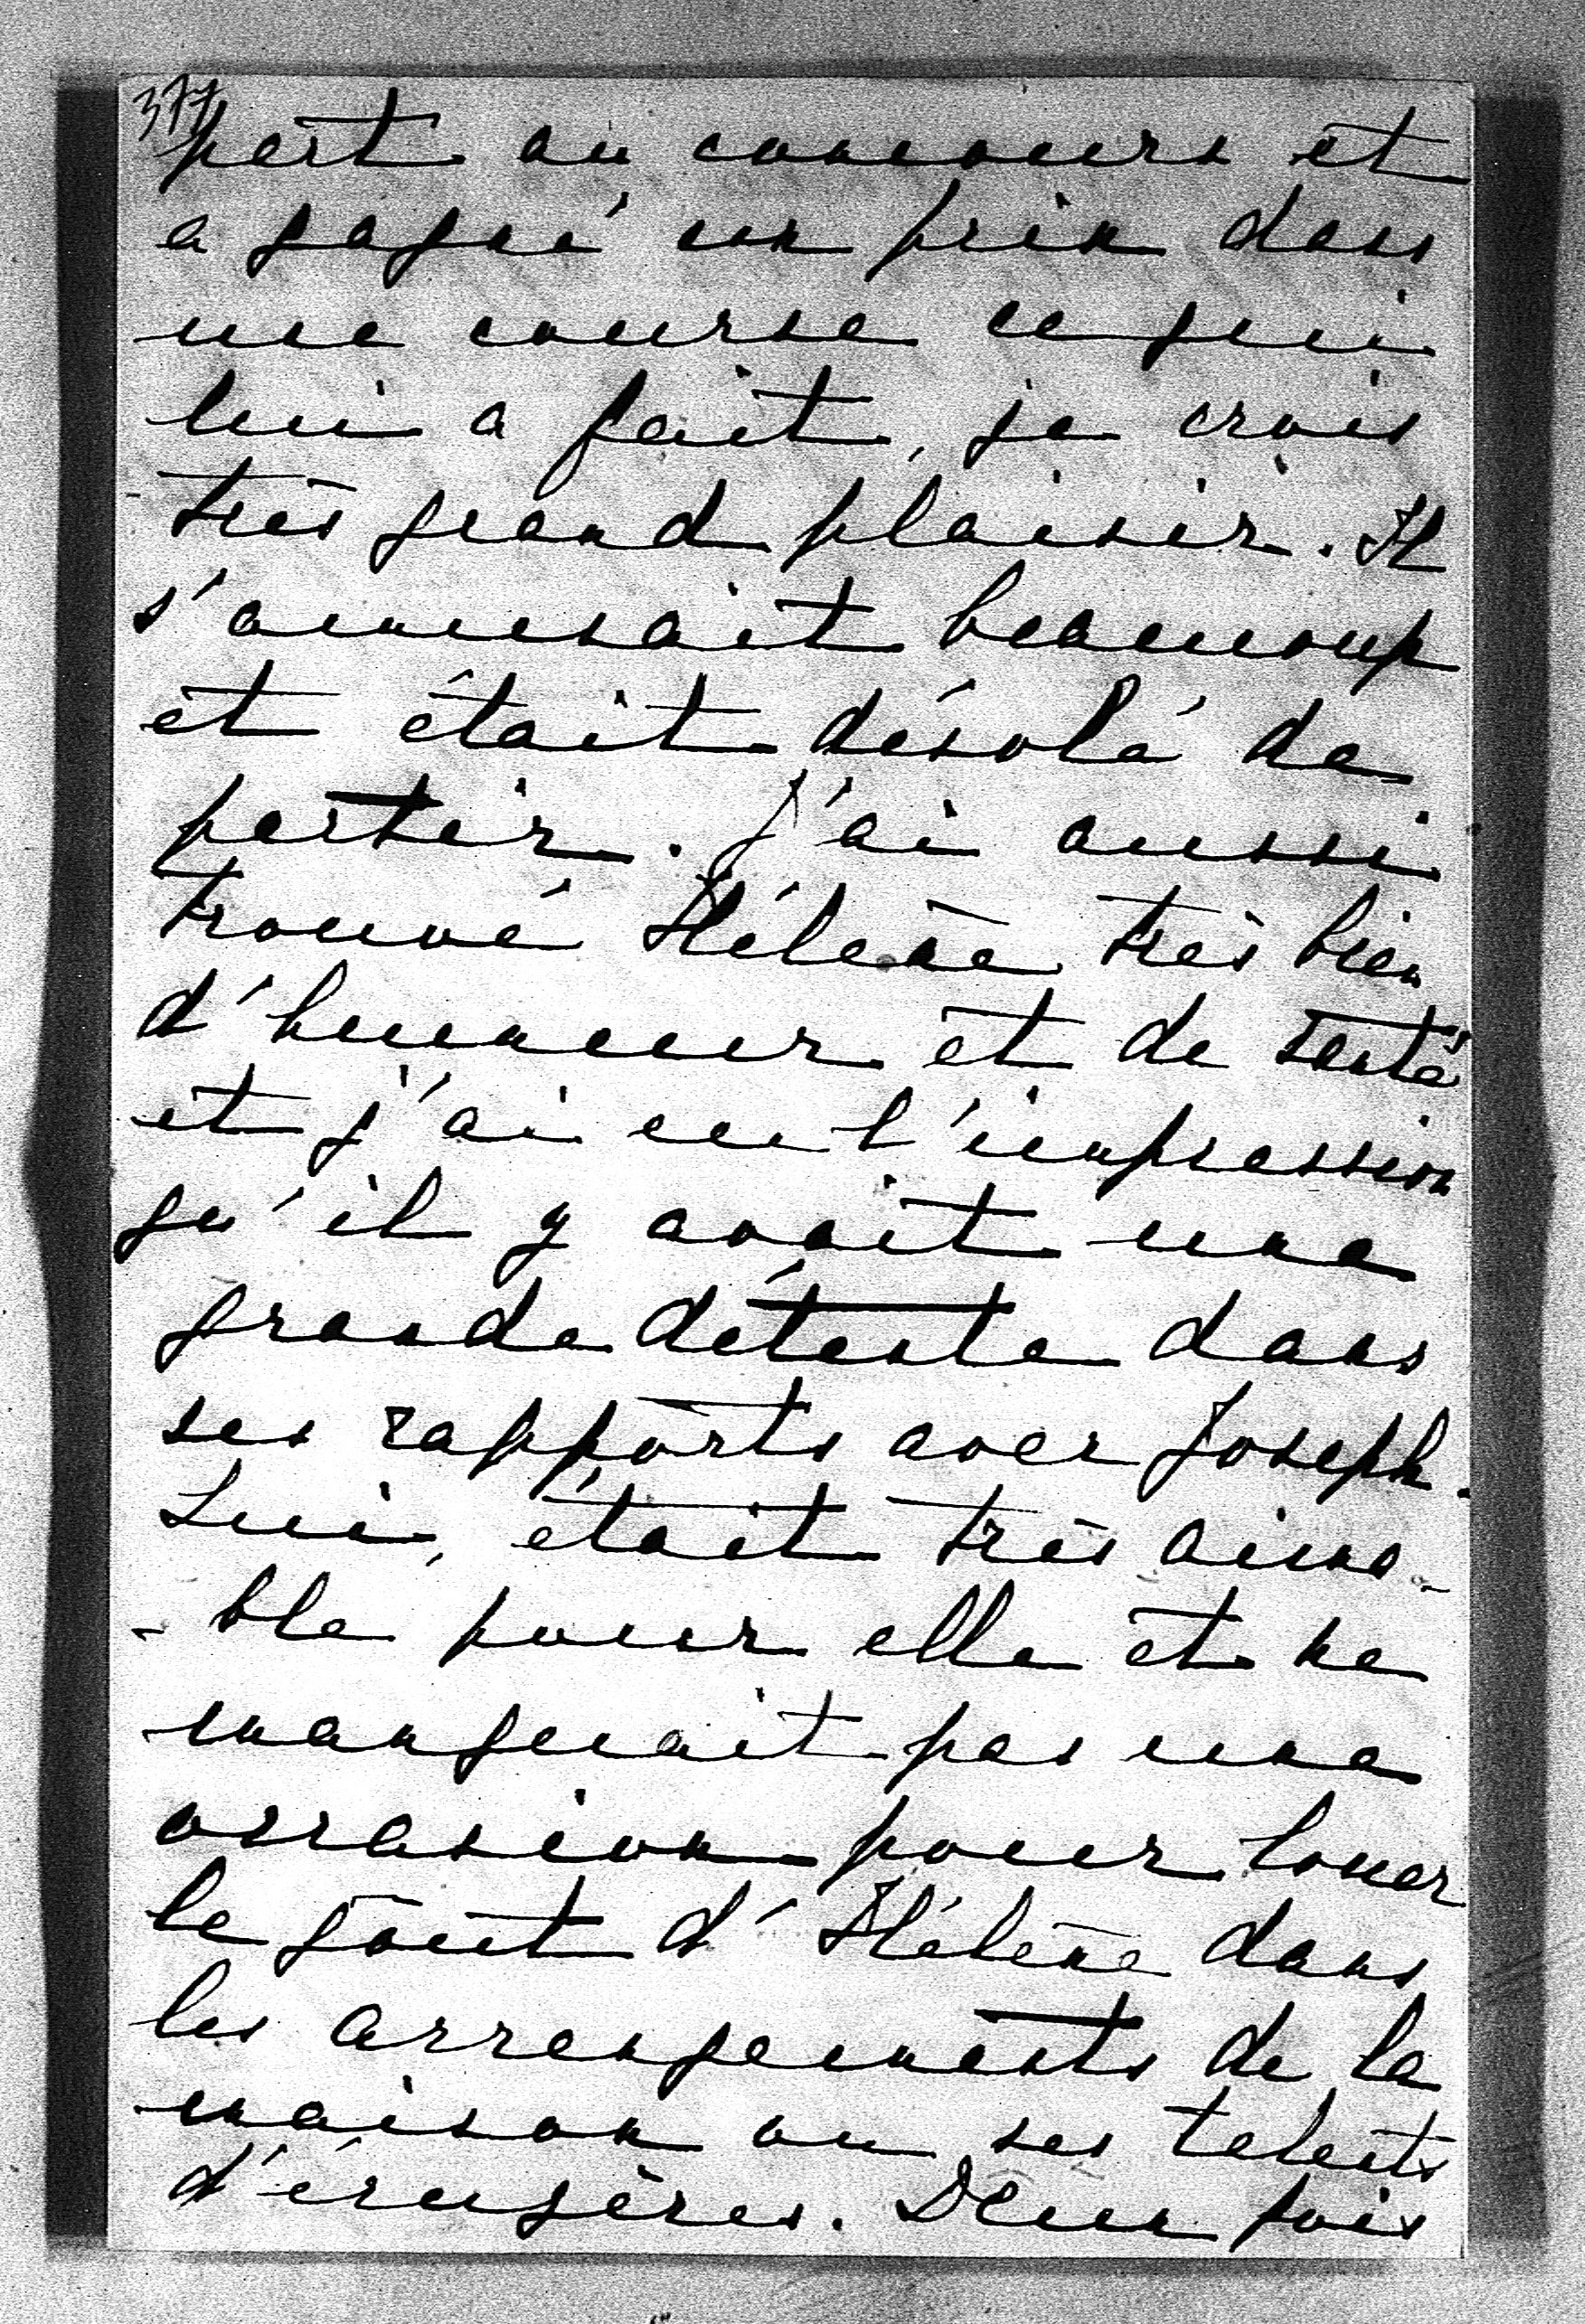 377
part au concours et
a gagné un prix dans
une course ce qui
lui a fait, je crois
très grand plaisir. Il
s'amusait beaucoup
et était désolé de
partir. J'ai aussi
trouvé Hélène très bien
d'humeur et de santé
et j'ai eu l'impression
qu'il y avait une
grande détente dans
ses rapports avec Joseph.
Lui, était très aima-
-ble pour elle et ne
manquait pas une
occasion pour louer
le goût d'Hélène dans
les arrangements de la
maison ou ses talents
d'écuyères. Deux fois